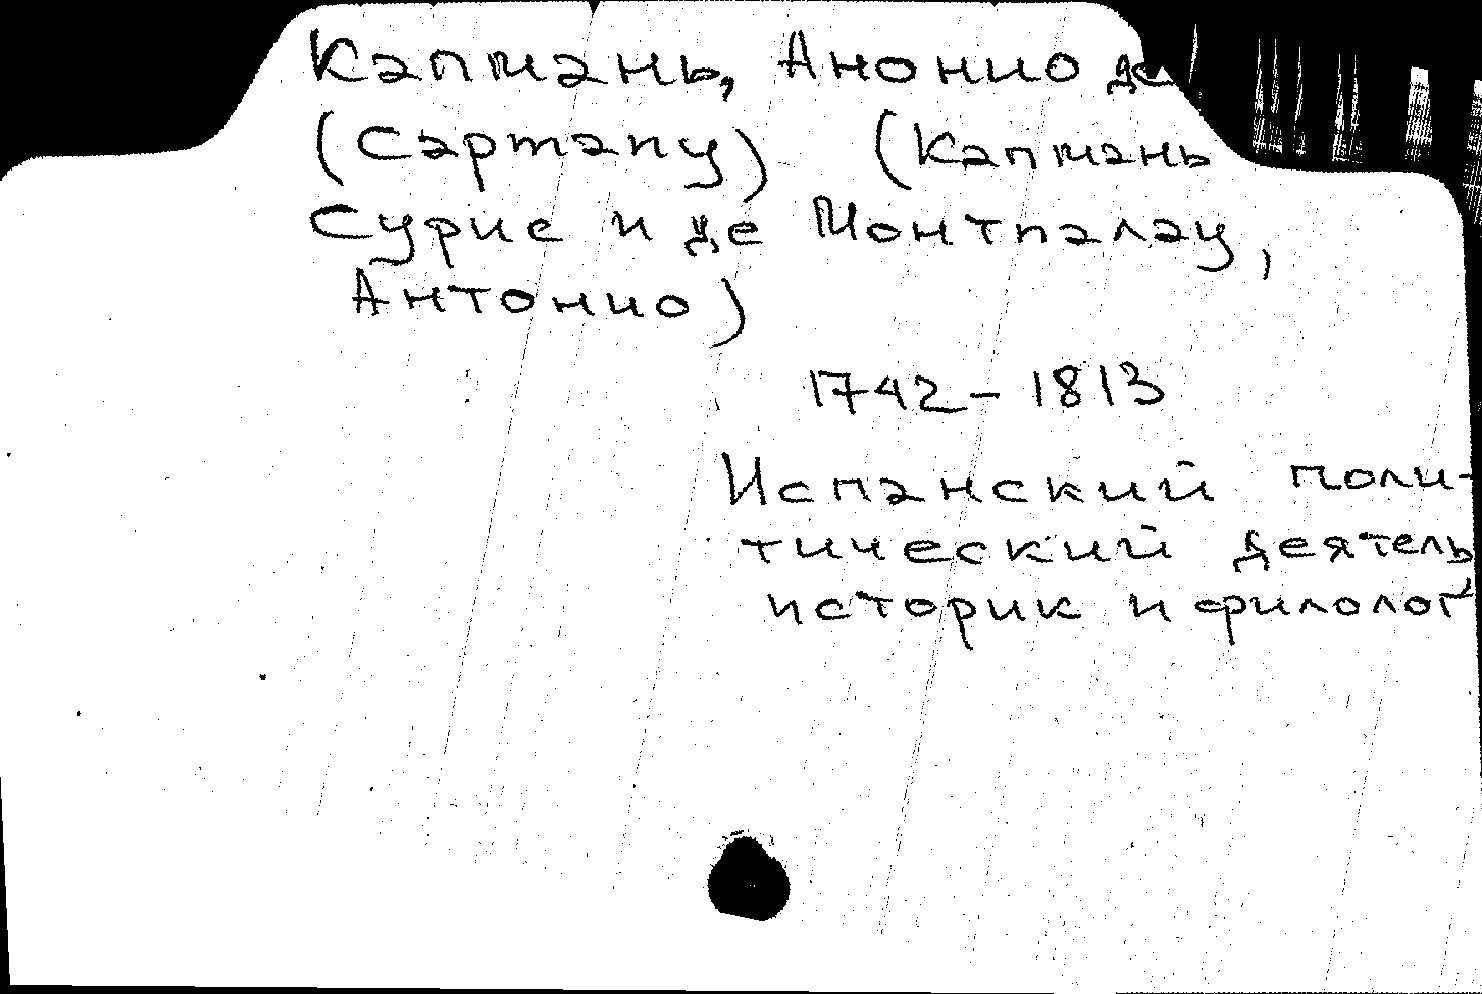 Капмань, Анонио де
(Capmany) (Капмань
Сурис и де Монтпалау,
Антонио)
1742 – 1813
Испанский поли-
тический деятель,
историк и филолог